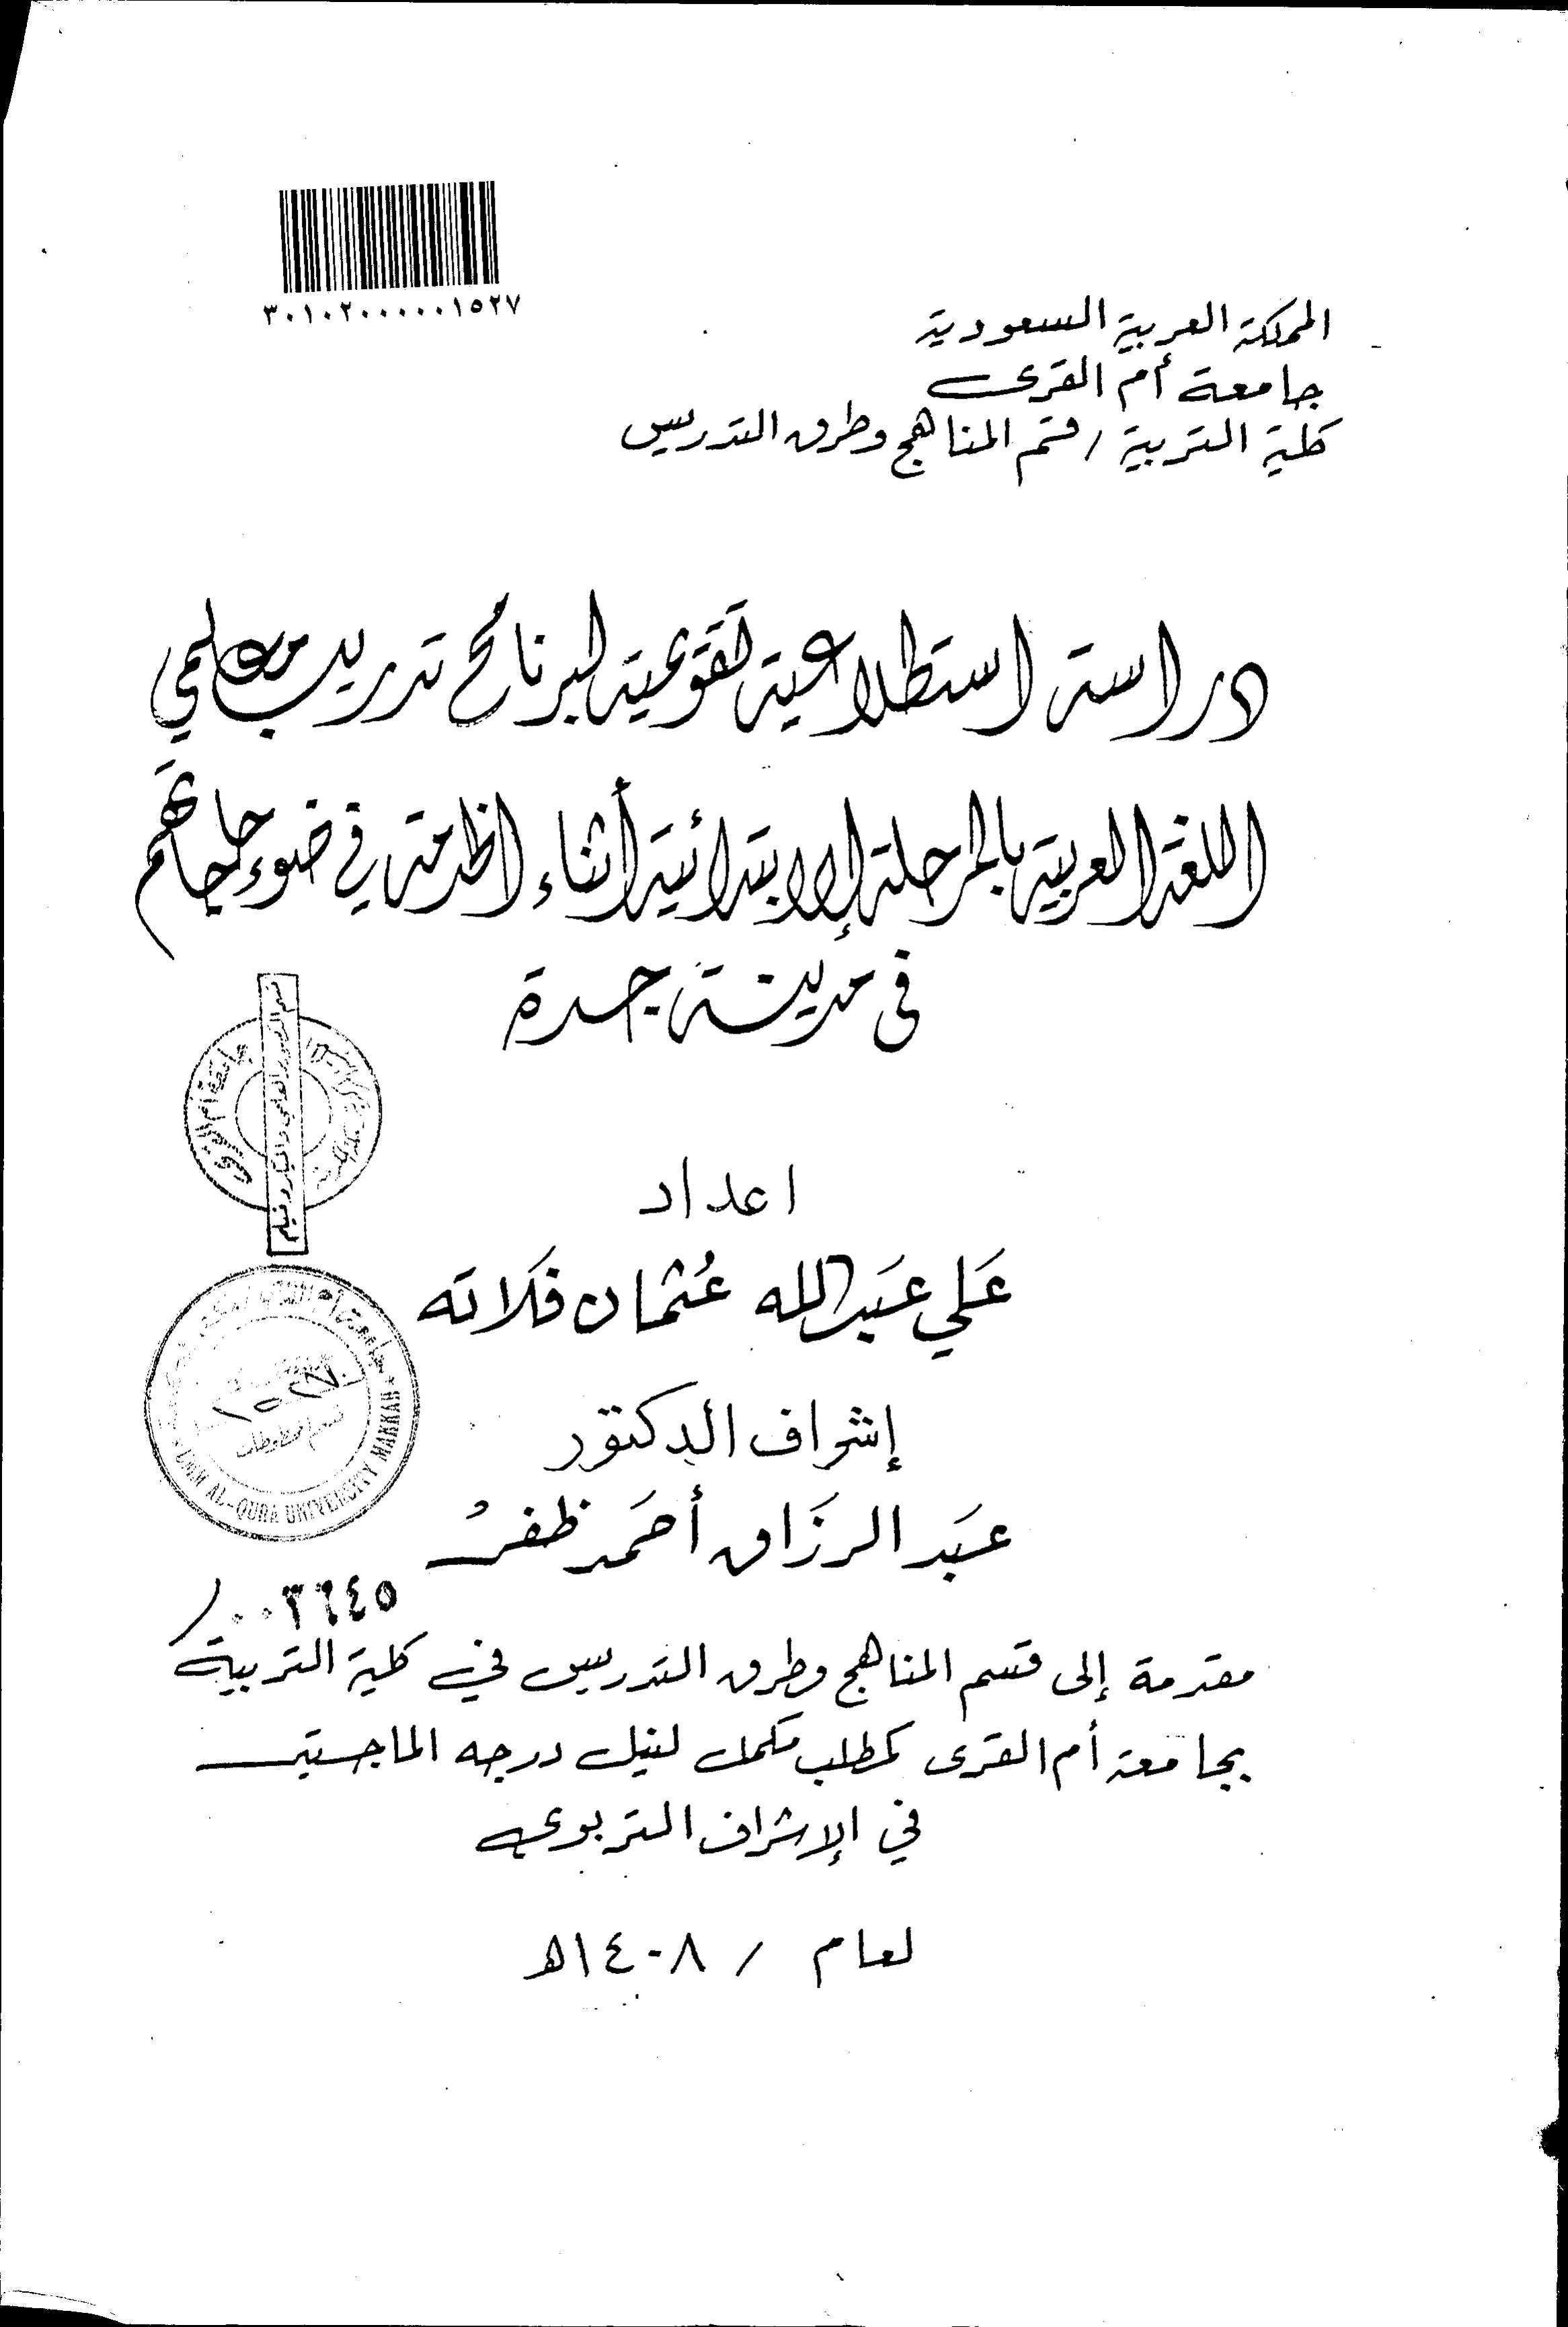 ٣٠١٠٢٠٠٠٠٠٠١٥٢٧
المملكة العربية السعودية
جامعة أم القرى
كلية التربية / قسم المناهج وطرق التدريس
دراسة استطلاعية تقويمية لبرنامج تدريب معلمي
اللغة العربية بالمرحلة الابتدائية أثناء الخدمة في ضوء حاجاتهم
في مدينة جدة
جامعة أم القرى
قسم التصوير العلمي والميكروفيلم
اعداد
عَلي عَبدالله عُثمان فَلاته
إشراف الدكتور
عَبد الرزَاق أحمَد ظفرُ
UMM AL-QURA UNIVERSITY MAKKAH
قسم المخطوطات
٠٠٣٦٤٥/
مقدمة إلى قسم المناهج وطرق التدريس في كلية التربية
بجامعة أم القرى كمطلب مكمل لنيل درجه الماجستير
في الإشراف التربوي
لعام / ١٤٠٨هـ